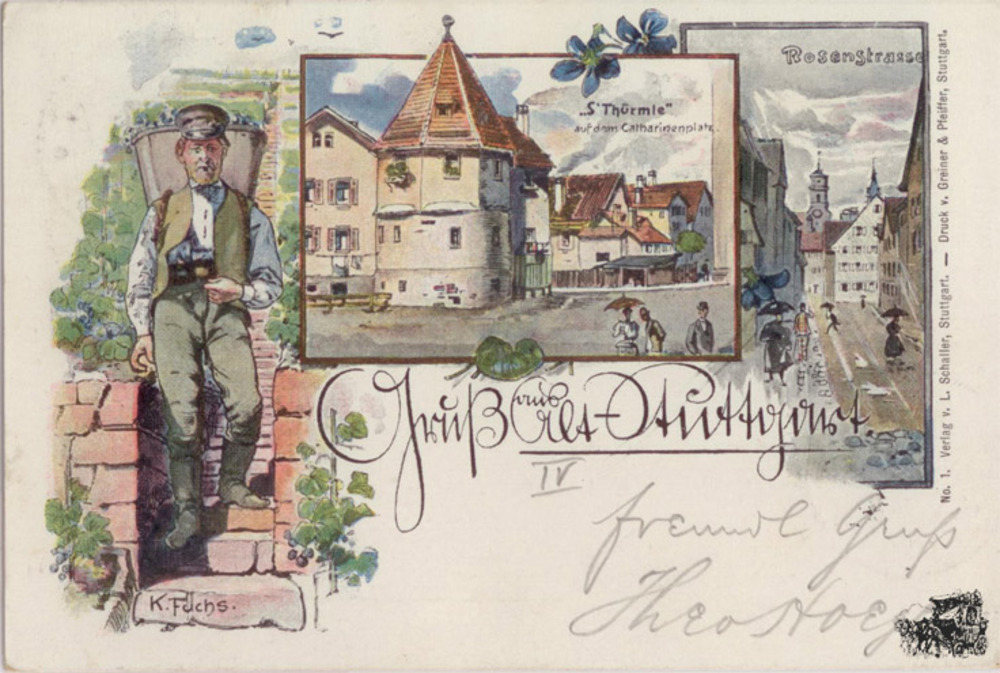 Rosenstrasse
„S' Thürmle"
auf dem Catharinenplatz.
Gruß aus Alt-Stuttgart.
IV
freundl Gruß
Theo
K. Fuchs.
No. 1. Verlag v. L. Schaller, Stuttgart. — Druck v. Greiner & Pfeiffer, Stuttgart.